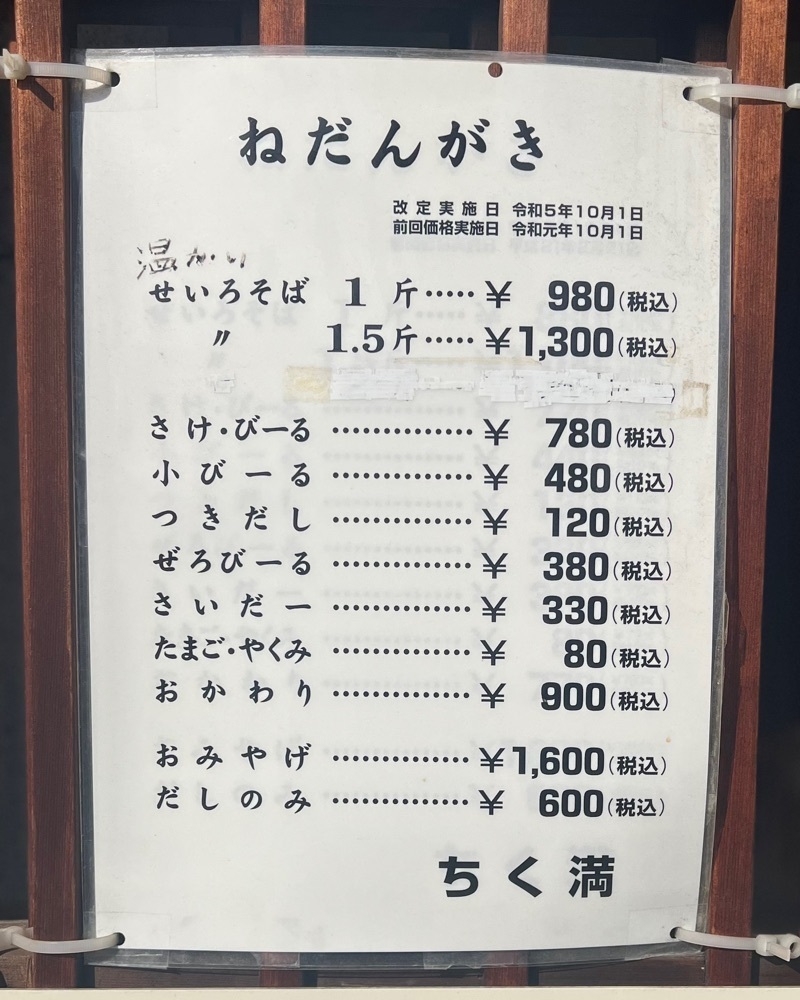 ねだんがき
改定実施日 令和5年10月1日
前回価格実施日 令和元年10月1日
温かい
せいろそば 1斤‥‥‥¥ 980(税込)
〃 1.5斤‥‥‥¥1,300(税込)
さけ・びーる ‥‥‥‥‥‥‥ ¥ 780(税込)
小びーる ‥‥‥‥‥‥‥ ¥ 480(税込)
つきだし ‥‥‥‥‥‥‥ ¥ 120(税込)
ぜろびーる ‥‥‥‥‥‥‥ ¥ 380(税込)
さいだー ‥‥‥‥‥‥‥ ¥ 330(税込)
たまご・やくみ ‥‥‥‥‥‥‥ ¥ 80(税込)
おかわり ‥‥‥‥‥‥‥ ¥ 900(税込)
おみやげ ‥‥‥‥‥‥‥ ¥1,600(税込)
だしのみ ‥‥‥‥‥‥‥ ¥ 600(税込)
ちく満